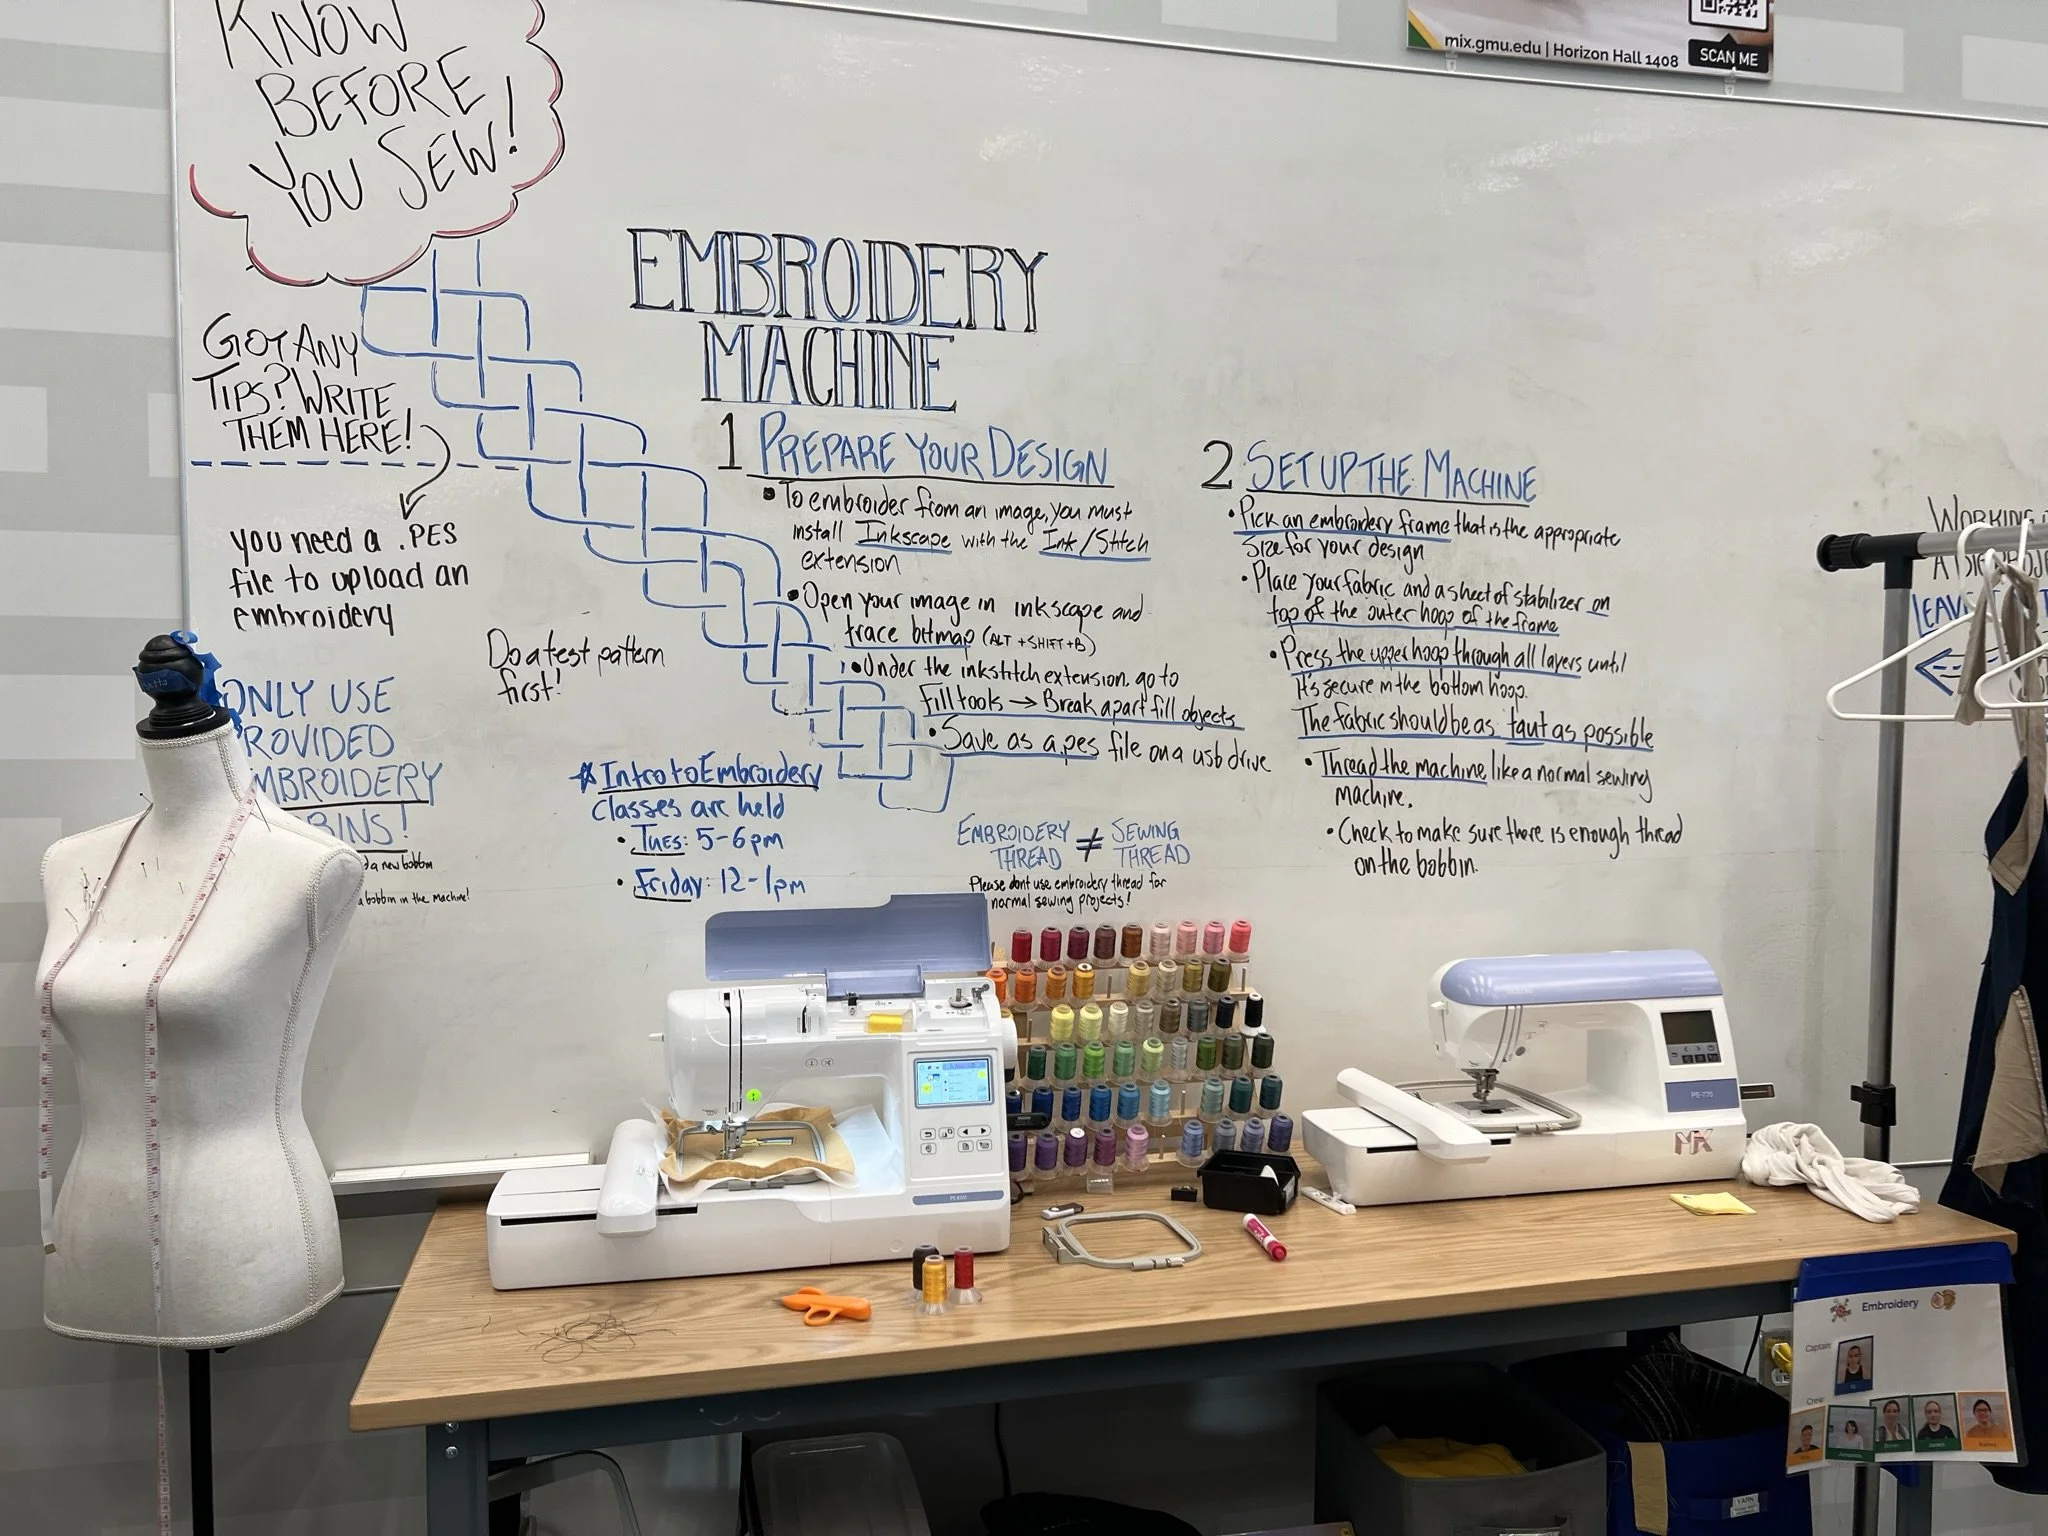 KNOW
BEFORE
YOU SEW!
mix.gmu.edu | Horizon Hall 1408
SCAN ME
GOT ANY
TIPS? WRITE
THEM HERE!
you need a .PES
file to upload an
embroidery
Do a test pattern
first!
ONLY USE
PROVIDED
EMBROIDERY
BOBINS!
a new bobbin
a bobbin in the machine!
Intro to Embroidery
Classes are held
• Tues: 5-6pm
• Friday: 12-1pm
EMBROIDERY
MACHINE
1 PREPARE YOUR DESIGN
• To embroider from an image, you must
install Inkscape with the Ink/Stitch
extension
• Open your image in inkscape and
trace bitmap (ALT + SHIFT + B)
• Under the inkstitch extension, go to
Fill tools → Break apart fill objects
• Save as a .pes file on a usb drive
EMBROIDERY THREAD ≠ SEWING THREAD
Please dont use embroidery thread for
normal sewing projects!
2 SET UP THE MACHINE
• Pick an embroidery frame that is the appropriate
size for your design
• Place your fabric and a sheet of stabilizer on
top of the outer hoop of the frame
• Press the upper hoop through all layers until
it's secure in the bottom hoop.
The fabric should be as taut as possible
• Thread the machine like a normal sewing
machine.
• Check to make sure there is enough thread
on the bobbin.
WORKING
A BIG PROJ
LEAV
PE800
PE-770
MIX
Embroidery
Captain
Crew
YARN